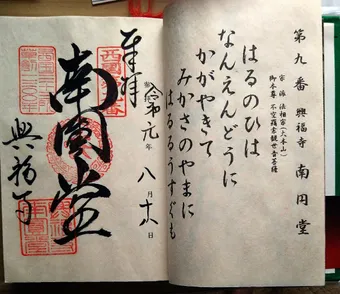 第九番 興福寺 南円堂
宗派 法相宗(大本山)
御本尊 不空羂索観世音菩薩
はるのひは
なんえんどうに
かがやきて
みかさのやまに
はるるうすぐも
奉拝
令和元年八月十八日
南圓堂
興福寺